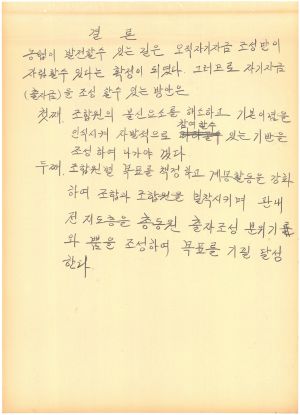 결 론
농협이 발전할수 있는 길은 오직자기자금 조성만이
자립할수 있다는 확정이 되였다. 그러므로 자기자금
(출자금)을 조성 할수 있는 방안은
첫째. 조합원의 불신요소를 해소하고 기본이념을
인식시켜 자발적으로 참여할수 있는 기반을
조성하여 나가야 겠다.
두째. 조합원별 목표를 책정하고 계몽활동을 강화
하여 조합과 조합원을 밀착시키며 관내
전지도층을 총동원 출자조성 분위기
와 붐을 조성하여 목표를 기필 달성
한다